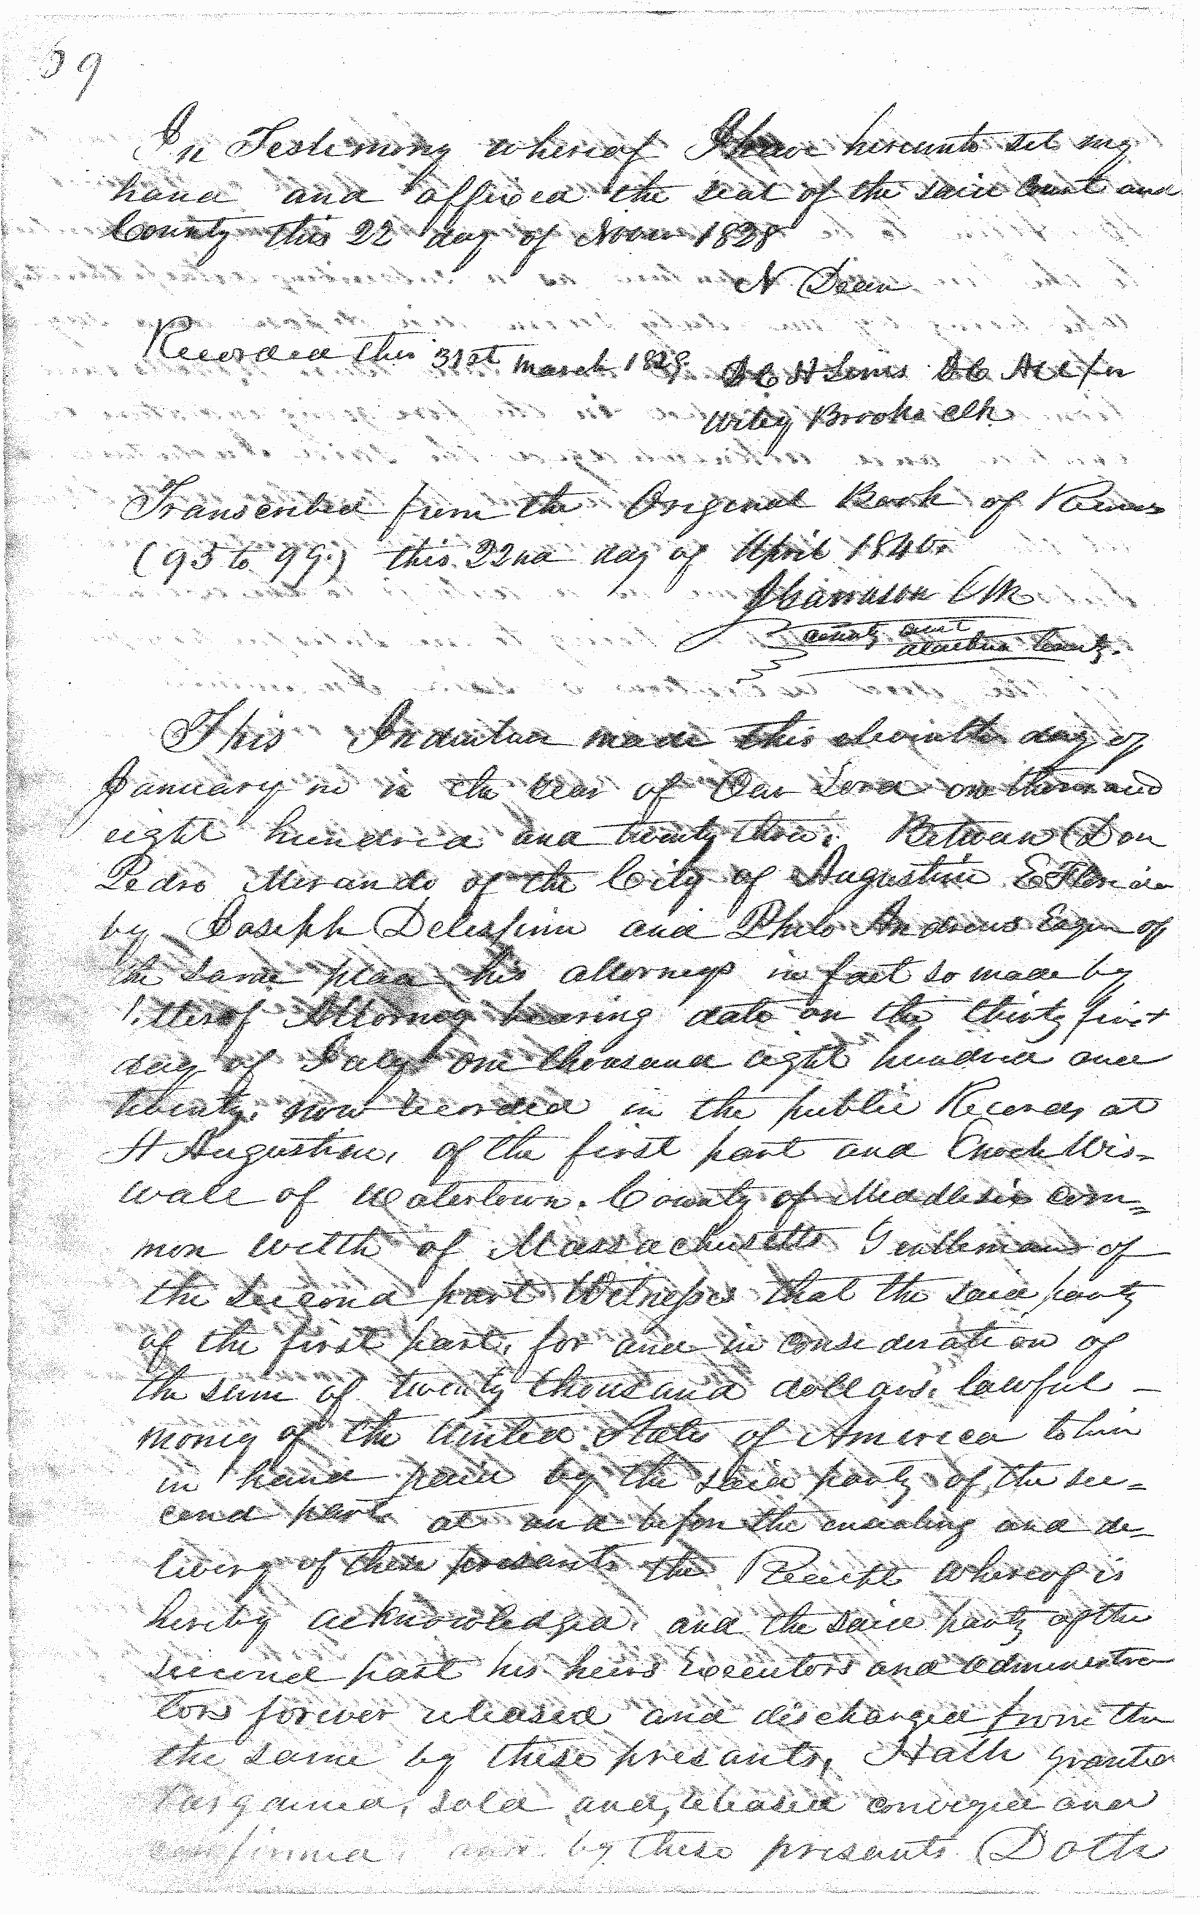 69
In Testimony whereof I have hereunto set my
hand and affixed the seal of the said Court and
County this 22 day of Novem 1828
N Dean
Recorded this 31st March 1829.
D C H Lewis D C A C for
Wiley Brooks Clk
Transcribed from the Original Book of
(95 to 99.) this 22nd day of April 1846
Clk
County Court
Alachua County.
This Indenture made this eleventh day of
January in in the Year of Our Lord one thousand
eight hundred and twenty three. Between Don
Pedro Mirando of the City of Augustine E Florida
by Joseph Delespine and Philo Andrews Esqr of
the same place his attorneys in fact so made by
letter of Attorney bearing date on the thirty first
day of July one thousand eight hundred and
twenty. now recorded in the public Records at
St Augustine, of the first part and Enoch Wis-
wall of Watertown. County of Middlesix com=
mon welth of Massachusetts Gentleman of
the second part Witnesses that the said party
of the first part, for and in consideration of
the sum of twenty thousand dollars, lawful -
money of the United States of America to him
in hand paid by the said party of the sec=
cond part at and before the ensealing and de=
livery of these presants the Receipt whereof is
hereby acknowledged, and the said party of the
second part his heirs Executors and administra
tors forever released and discharged from the
the same by these presants, Hath granted
bargained, sold and, released conveyed and
confirmed, and by these presants Doth